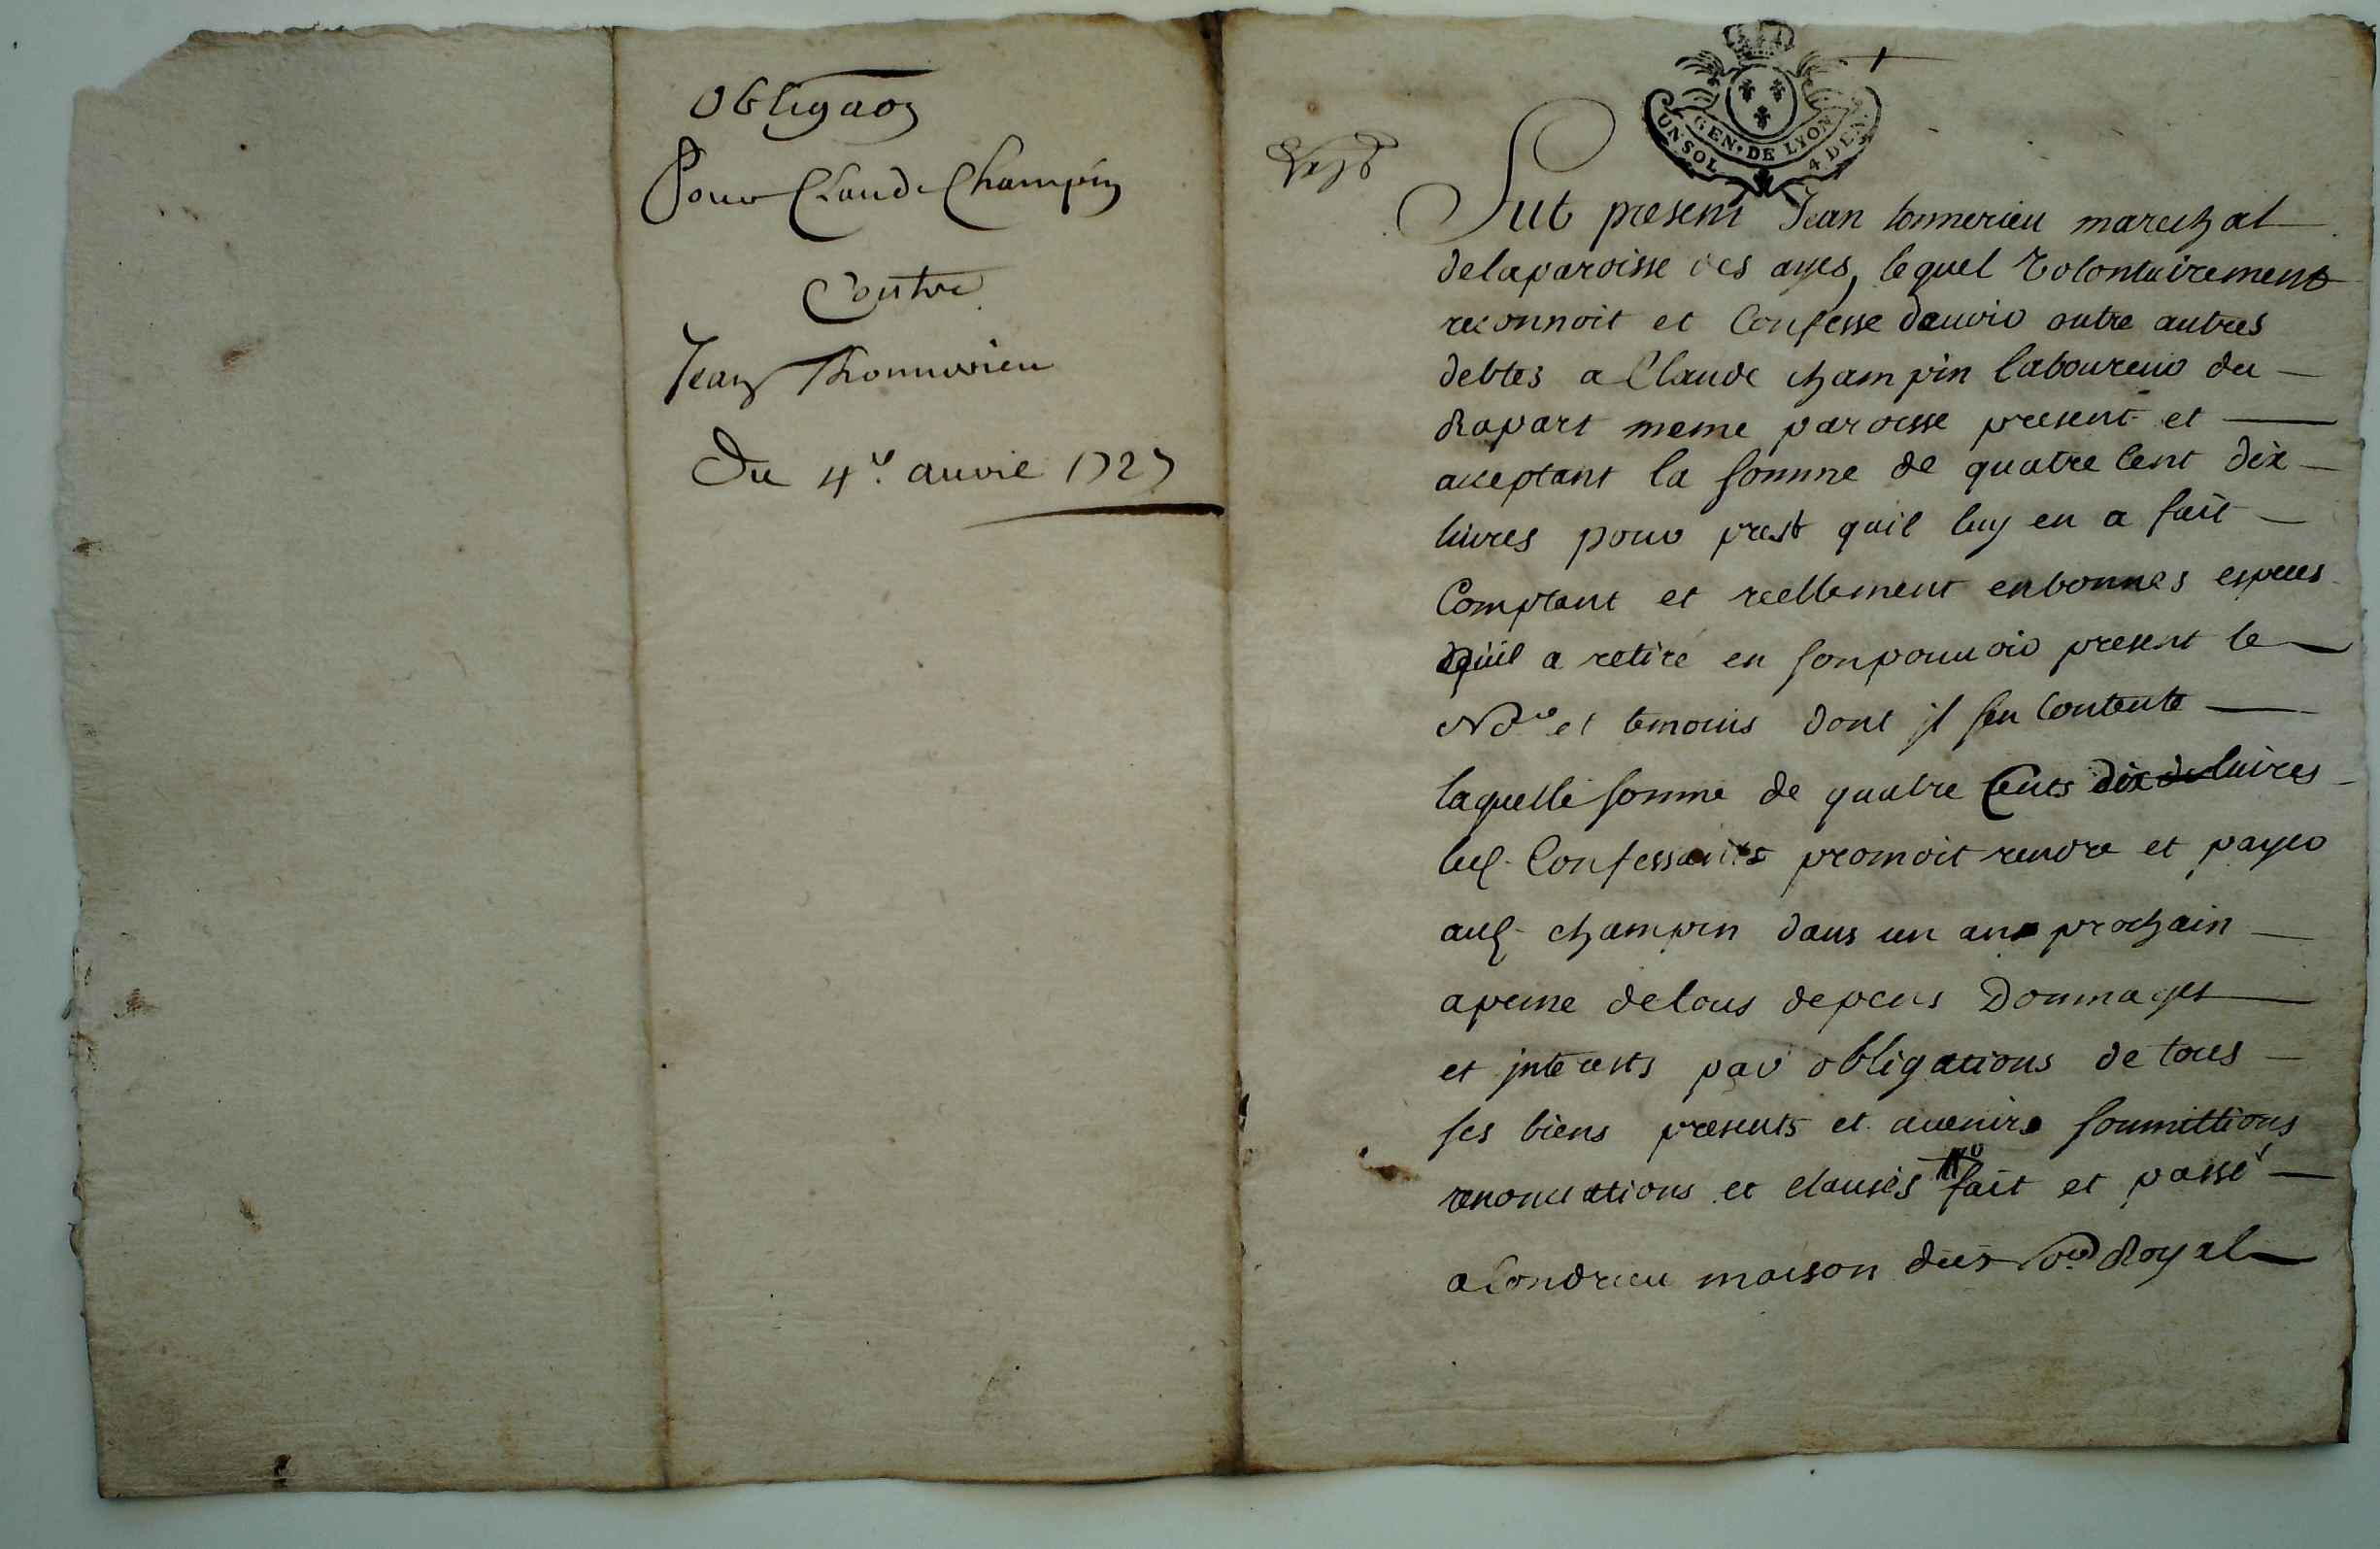 Obligaon
Pour Claude Champin
Contre
Jean Thonnerieu
Du 4e. auril 1727
GEN. DE LYON
UN SOL 4 DEN.
Fut present Jean tonnerieu marechal
delaparoisse des ayes, lequel Volontairement
reconnoit et Confesse deuoir outre autres
debtes a Claude champin laboureur du
Rapart meme paroisse present et
acceptant la somme de quatre Cent dix
liures pour prest quil luy en a fait
Comptant et reellement enbonnes especes
quil a retiré en sonpouuoir present le
Nore et temoins dont jl sen Contente
laquelle somme de quatre Cents dix liures
led. Confessant promoit rendre et payer
aud. champin dans un an prochain
apeine detous depens Dommages
et jnterests par obligations de tous
ses biens presents et auenir soumittions
renonciations et clauses fait et passé
a Condrieu maison du Nore Royal